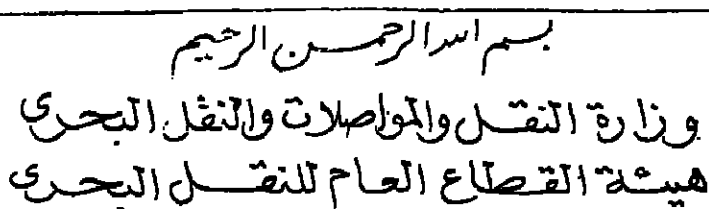 بسم الله الرحمن الرحيم
وزارة النقل والمواصلات والنقل البحرى
هيئة القطاع العام للنقل البحرى